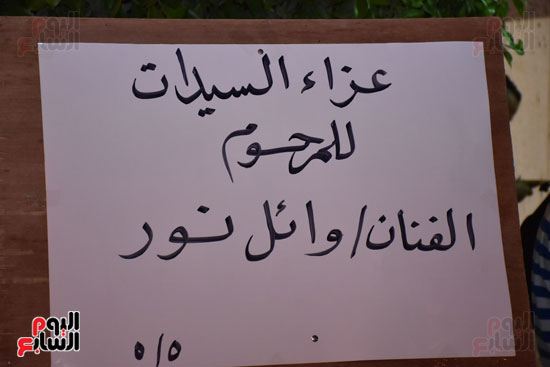 عزاء السيدات
للمرحوم
الفنان/وائل نور
٥/٥
اليوم السابع